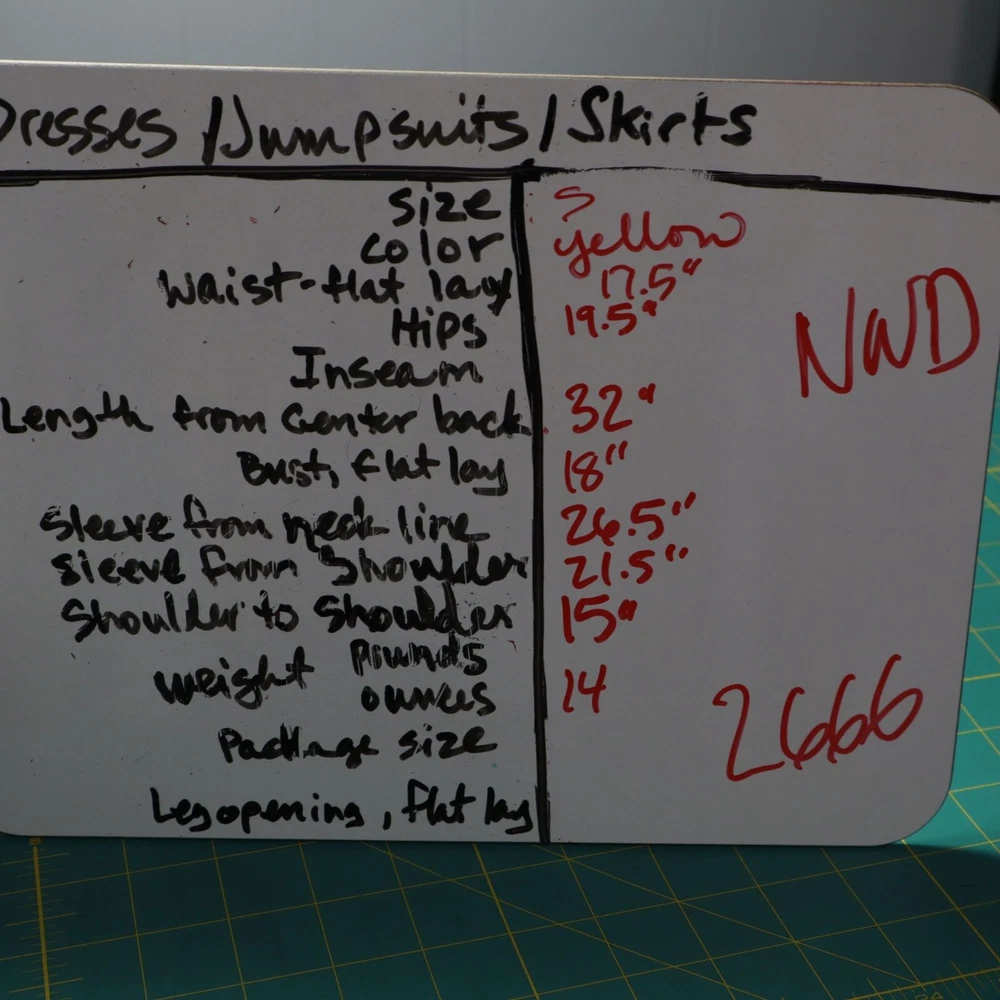 Dresses / Jumpsuits / Skirts
size S
color yellow
Waist-flat lay 17.5"
Hips 19.5"
NWD
Inseam
Length from Center back 32"
Bust, flat lay 18"
Sleeve from neck line 26.5"
sleeve from shoulder 21.5"
Shoulder to Shoulder 15"
pounds
weight ounces 14
2666
Package size
Leg opening, flat lay